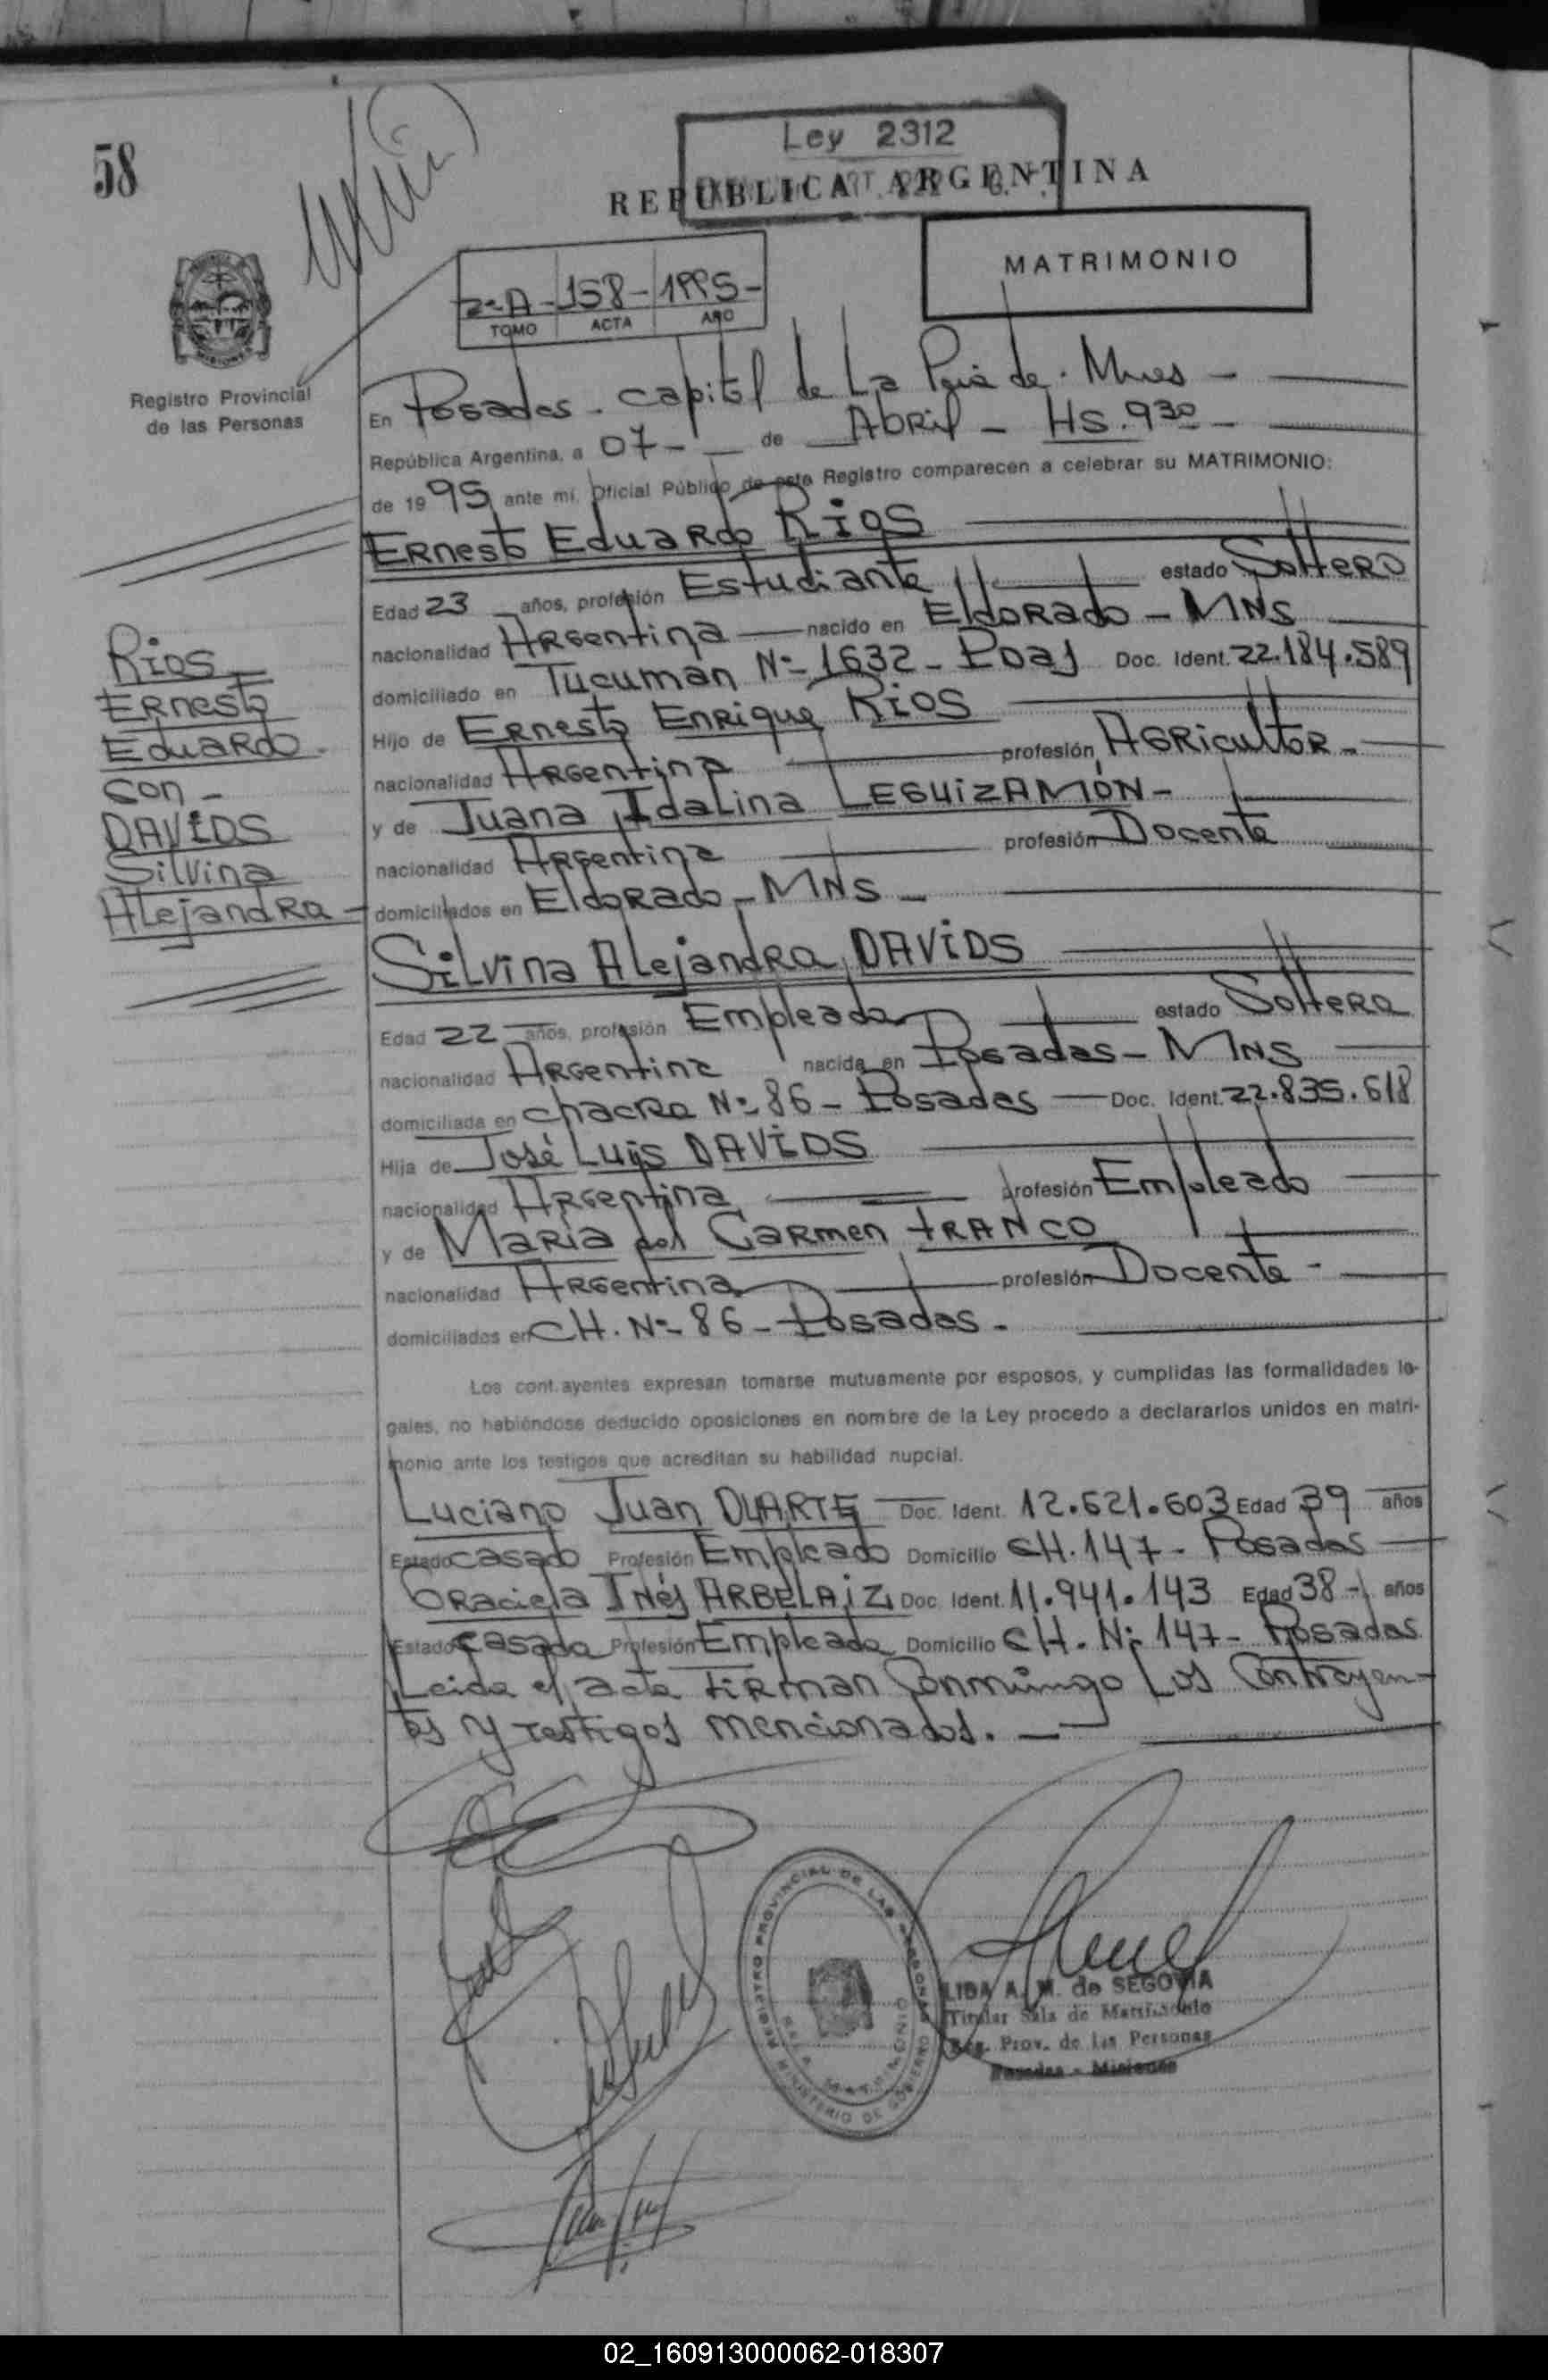 58
Ley 2312
REPUBLICA ARGENTINA
MATRIMONIO
2º A - 158 - 1995 -
TOMO ACTA AÑO
Registro Provincial
de las Personas
En Posadas. capital de La Pcia de. Mnes -
República Argentina, a 07 - de Abril - HS. 930 -
de 1995 ante mí, Oficial Público de este Registro comparecen a celebrar su MATRIMONIO:
Ernesto Eduardo Rios
Edad 23 años, profesión Estudiante estado Soltero
nacionalidad Argentina nacido en Eldorado - MNS
domiciliado en Tucuman Nº 1632 - Pdas Doc. Ident. 22.184.589
Hijo de Ernesto Enrique Rios
nacionalidad Argentina profesión Agricultor -
y de Juana Idalina LEGUIZAMÓN -
nacionalidad Argentina profesión Docente
domiciliados en Eldorado - MNS -
Rios
Ernesto
Eduardo -
con -
DAVIDS
Silvina
Alejandra -
Silvina Alejandra DAVIDS
Edad 22 años, profesión Empleada estado Soltera
nacionalidad Argentina nacida en Posadas - MNS
domiciliada en chacra Nº 86 - Posadas Doc. Ident. 22.835.618
Hija de José Luis DAVIDS
nacionalidad Argentina profesión Empleado
y de Maria del Carmen FRANCO
nacionalidad Argentina profesión Docente -
domiciliados en CH. Nº 86 - Posadas -
Los contrayentes expresan tomarse mutuamente por esposos, y cumplidas las formalidades le-
gales, no habiéndose deducido oposiciones en nombre de la Ley procedo a declararlos unidos en matri-
monio ante los testigos que acreditan su habilidad nupcial.
Luciano Juan DUARTE Doc. Ident. 12.621.603 Edad 39 años
Estado casado Profesión Empleado Domicilio CH. 147 - Posadas
Graciela Inés ARBELAIZ Doc. Ident. 11.941.143 Edad 38 - años
Estado casada Profesión Empleada Domicilio CH. Nº 147 - Posadas
Leida el acta firman Conmingo Los Contrayen-
tes y testigos mencionados. -
REGISTRO PROVINCIAL DE LAS PERSONAS
SALA MATRIMONIO
MINISTERIO DE GOBIERNO
LIDA A. M. de SEGOVIA
Titular Sala de Matrimonio
Reg. Prov. de las Personas
Posadas - Misiones
02_160913000062-018307